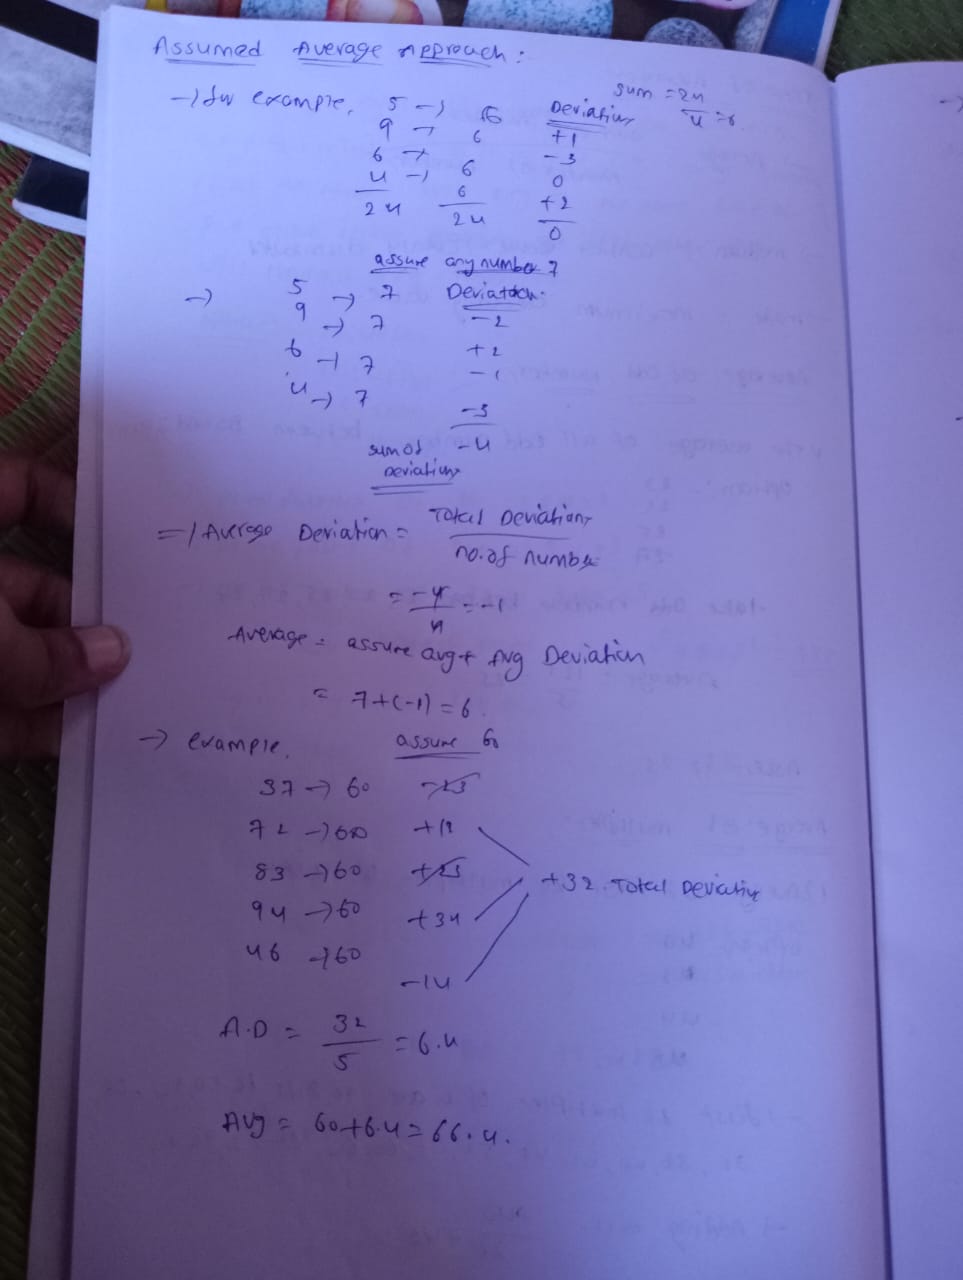 Assumed Average Approach:
sum = 24
→ for example, 5 → 6 Deviation 4 = 6
9 → 6 +1
6 → 6 -3
4 → 6 0
24 24 +2
0
assure any number 7
→ 5 → 7 Deviation.
9 → 7 -2
6 → 7 +2
4 → 7 -1
-3
sum of -4
Deviations
=> Average Deviation = Total Deviations
no. of number
= -4/4 = -1
Average = assure avg + Avg Deviation
= 7+(-1) = 6.
→ example, assure 60
37 → 60 -23
72 → 60 +12
83 → 60 +23
+32 Total Deviation
94 → 60 +34
46 → 60
-14
A.D = 32/5 = 6.4
Avg = 60+6.4 = 66.4.